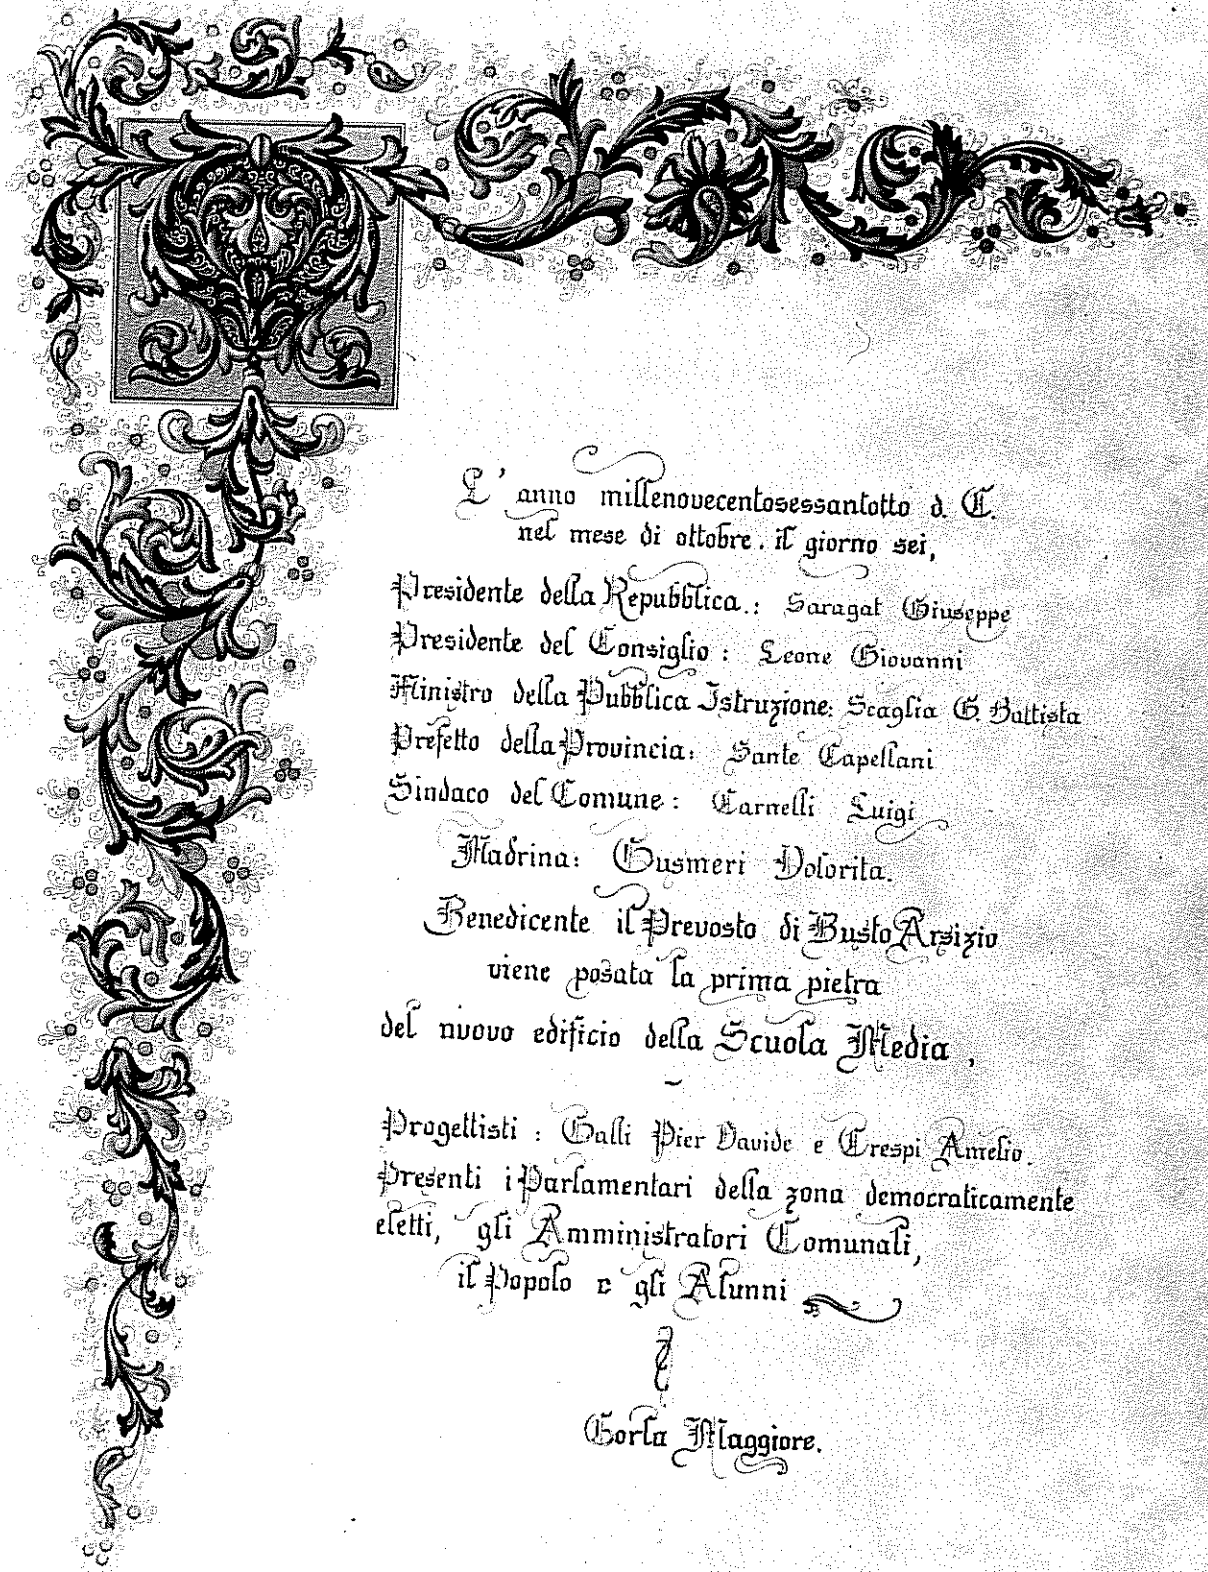 L' anno millenovecentosessantotto d. C.
nel mese di ottobre. il giorno sei,
Presidente della Repubblica.: Saragat Giuseppe
Presidente del Consiglio : Leone Giovanni
Ministro della Pubblica Istruzione: Scaglia G. Battista
Prefetto della Provincia: Sante Capellani
Sindaco del Comune : Carnelli Luigi
Madrina: Gusmeri Dolorita.
Benedicente il Prevosto di Busto Arsizio
viene posata la prima pietra
del nuovo edificio della Scuola Media ,
Progettisti : Galli Pier Davide e Crespi Amelio.
Presenti i Parlamentari della zona democraticamente
eletti, gli Amministratori Comunali,
il Popolo e gli Alunni
Gorla Maggiore.